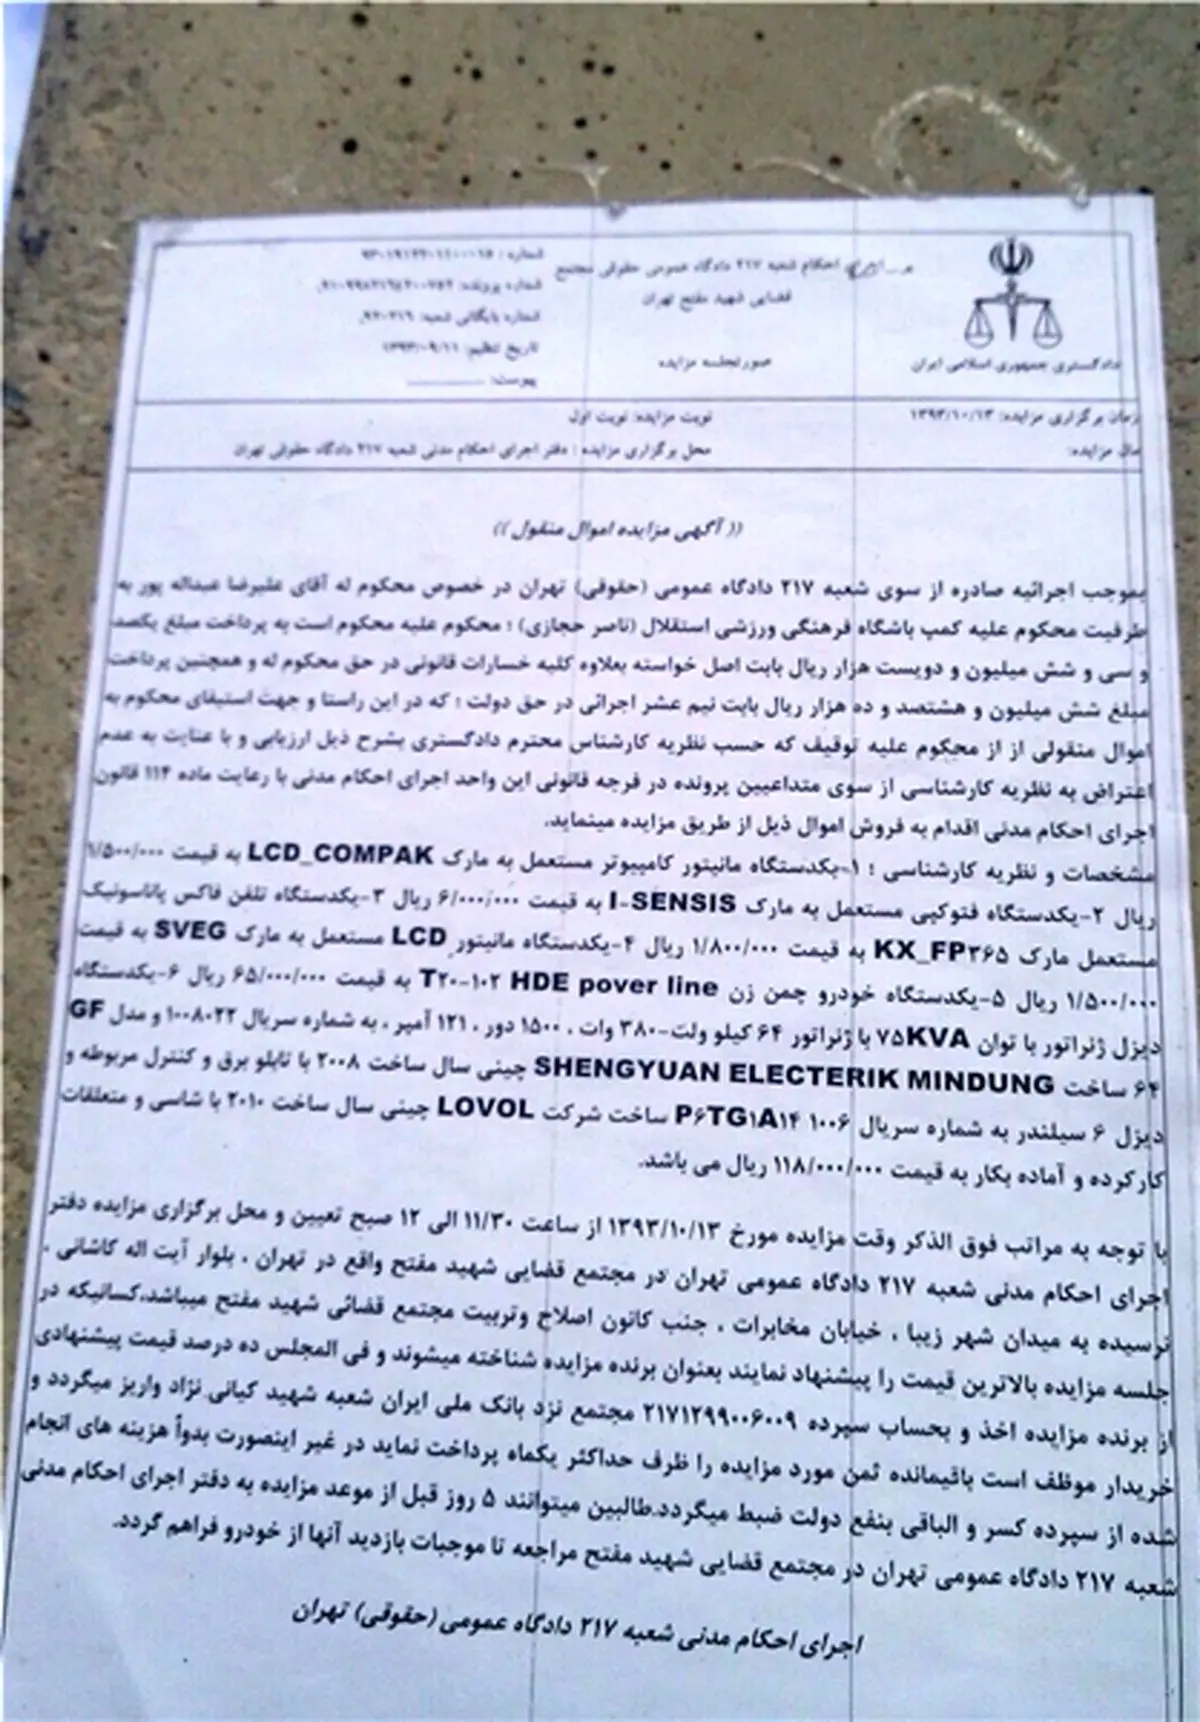 اجرای احکام شعبه ۲۱۷ دادگاه عمومی حقوقی مجتمع
قضایی شهید مفتح تهران
صورتجلسه مزایده
دادگستری جمهوری اسلامی ایران
شماره :
شماره پرونده:
شماره بایگانی شعبه: ۹۳۰۳۱۹
تاریخ تنظیم: ۱۳۹۳/۰۹/۱۱
پیوست:
زمان برگزاری مزایده: ۱۳۹۳/۱۰/۱۳
نوبت مزایده: نوبت اول
مال مزایده:
محل برگزاری مزایده : دفتر اجرای احکام مدنی شعبه ۲۱۷ دادگاه حقوقی تهران
(( آگهی مزایده اموال منقول ))
بموجب اجرائیه صادره از سوی شعبه ۲۱۷ دادگاه عمومی (حقوقی) تهران در خصوص محکوم له آقای علیرضا عبداله پور به
طرفیت محکوم علیه کمپ باشگاه فرهنگی ورزشی استقلال (ناصر حجازی) ؛ محکوم علیه محکوم است به پرداخت مبلغ یکصد
و سی و شش میلیون و دویست هزار ریال بابت اصل خواسته بعلاوه کلیه خسارات قانونی در حق محکوم له و همچنین پرداخت
مبلغ شش میلیون و هشتصد و ده هزار ریال بابت نیم عشر اجرائی در حق دولت ؛ که در این راستا و جهت استیفای محکوم به
اموال منقولی از از محکوم علیه توقیف که حسب نظریه کارشناس محترم دادگستری بشرح ذیل ارزیابی و با عنایت به عدم
اعتراض به نظریه کارشناسی از سوی متداعیین پرونده در فرجه قانونی این واحد اجرای احکام مدنی با رعایت ماده ۱۱۴ قانون
اجرای احکام مدنی اقدام به فروش اموال ذیل از طریق مزایده مینماید.
مشخصات و نظریه کارشناسی : ۱-یکدستگاه مانیتور کامپیوتر مستعمل به مارک LCD_COMPAK به قیمت ۱/۵۰۰/۰۰۰
ریال ۲-یکدستگاه فتوکپی مستعمل به مارک I-SENSIS به قیمت ۶/۰۰۰/۰۰۰ ریال ۳-یکدستگاه تلفن فاکس پاناسونیک
مستعمل مارک KX_FP۳۶۵ به قیمت ۱/۸۰۰/۰۰۰ ریال ۴-یکدستگاه مانیتور LCD مستعمل به مارک SVEG به قیمت
۱/۵۰۰/۰۰۰ ریال ۵-یکدستگاه خودرو چمن زن T۲۰-۱۰۲ HDE pover line به قیمت ۶۵/۰۰۰/۰۰۰ ریال ۶-یکدستگاه
دیزل ژنراتور با توان ۷۵KVA با ژنراتور ۶۴ کیلو ولت-۳۸۰ وات ، ۱۵۰۰ دور ، ۱۲۱ آمپر ، به شماره سریال ۱۰۰۸۰۲۲ و مدل GF
۶۴ ساخت SHENGYUAN ELECTERIK MINDUNG چینی سال ساخت ۲۰۰۸ با تابلو برق و کنترل مربوطه و
دیزل ۶ سیلندر به شماره سریال ۱۰۰۶ P۶TG۱A۱۴ ساخت شرکت LOVOL چینی سال ساخت ۲۰۱۰ با شاسی و متعلقات
کارکرده و آماده بکار به قیمت ۱۱۸/۰۰۰/۰۰۰ ریال می باشد.
با توجه به مراتب فوق الذکر وقت مزایده مورخ ۱۳۹۳/۱۰/۱۳ از ساعت ۱۱/۳۰ الی ۱۲ صبح تعیین و محل برگزاری مزایده دفتر
اجرای احکام مدنی شعبه ۲۱۷ دادگاه عمومی تهران در مجتمع قضایی شهید مفتح واقع در تهران ، بلوار آیت اله کاشانی ،
نرسیده به میدان شهر زیبا ، خیابان مخابرات ، جنب کانون اصلاح وتربیت مجتمع قضائی شهید مفتح میباشد.کسانیکه در
جلسه مزایده بالاترین قیمت را پیشنهاد نمایند بعنوان برنده مزایده شناخته میشوند و فی المجلس ده درصد قیمت پیشنهادی
از برنده مزایده اخذ و بحساب سپرده ۲۱۷۱۲۹۹۰۰۶۰۰۹ مجتمع نزد بانک ملی ایران شعبه شهید کیانی نژاد واریز میگردد و
خریدار موظف است باقیمانده ثمن مورد مزایده را ظرف حداکثر یکماه پرداخت نماید در غیر اینصورت بدوأ هزینه های انجام
شده از سپرده کسر و الباقی بنفع دولت ضبط میگردد.طالبین میتوانند ۵ روز قبل از موعد مزایده به دفتر اجرای احکام مدنی
شعبه ۲۱۷ دادگاه عمومی تهران در مجتمع قضایی شهید مفتح مراجعه تا موجبات بازدید آنها از خودرو فراهم گردد.
اجرای احکام مدنی شعبه ۲۱۷ دادگاه عمومی (حقوقی) تهران